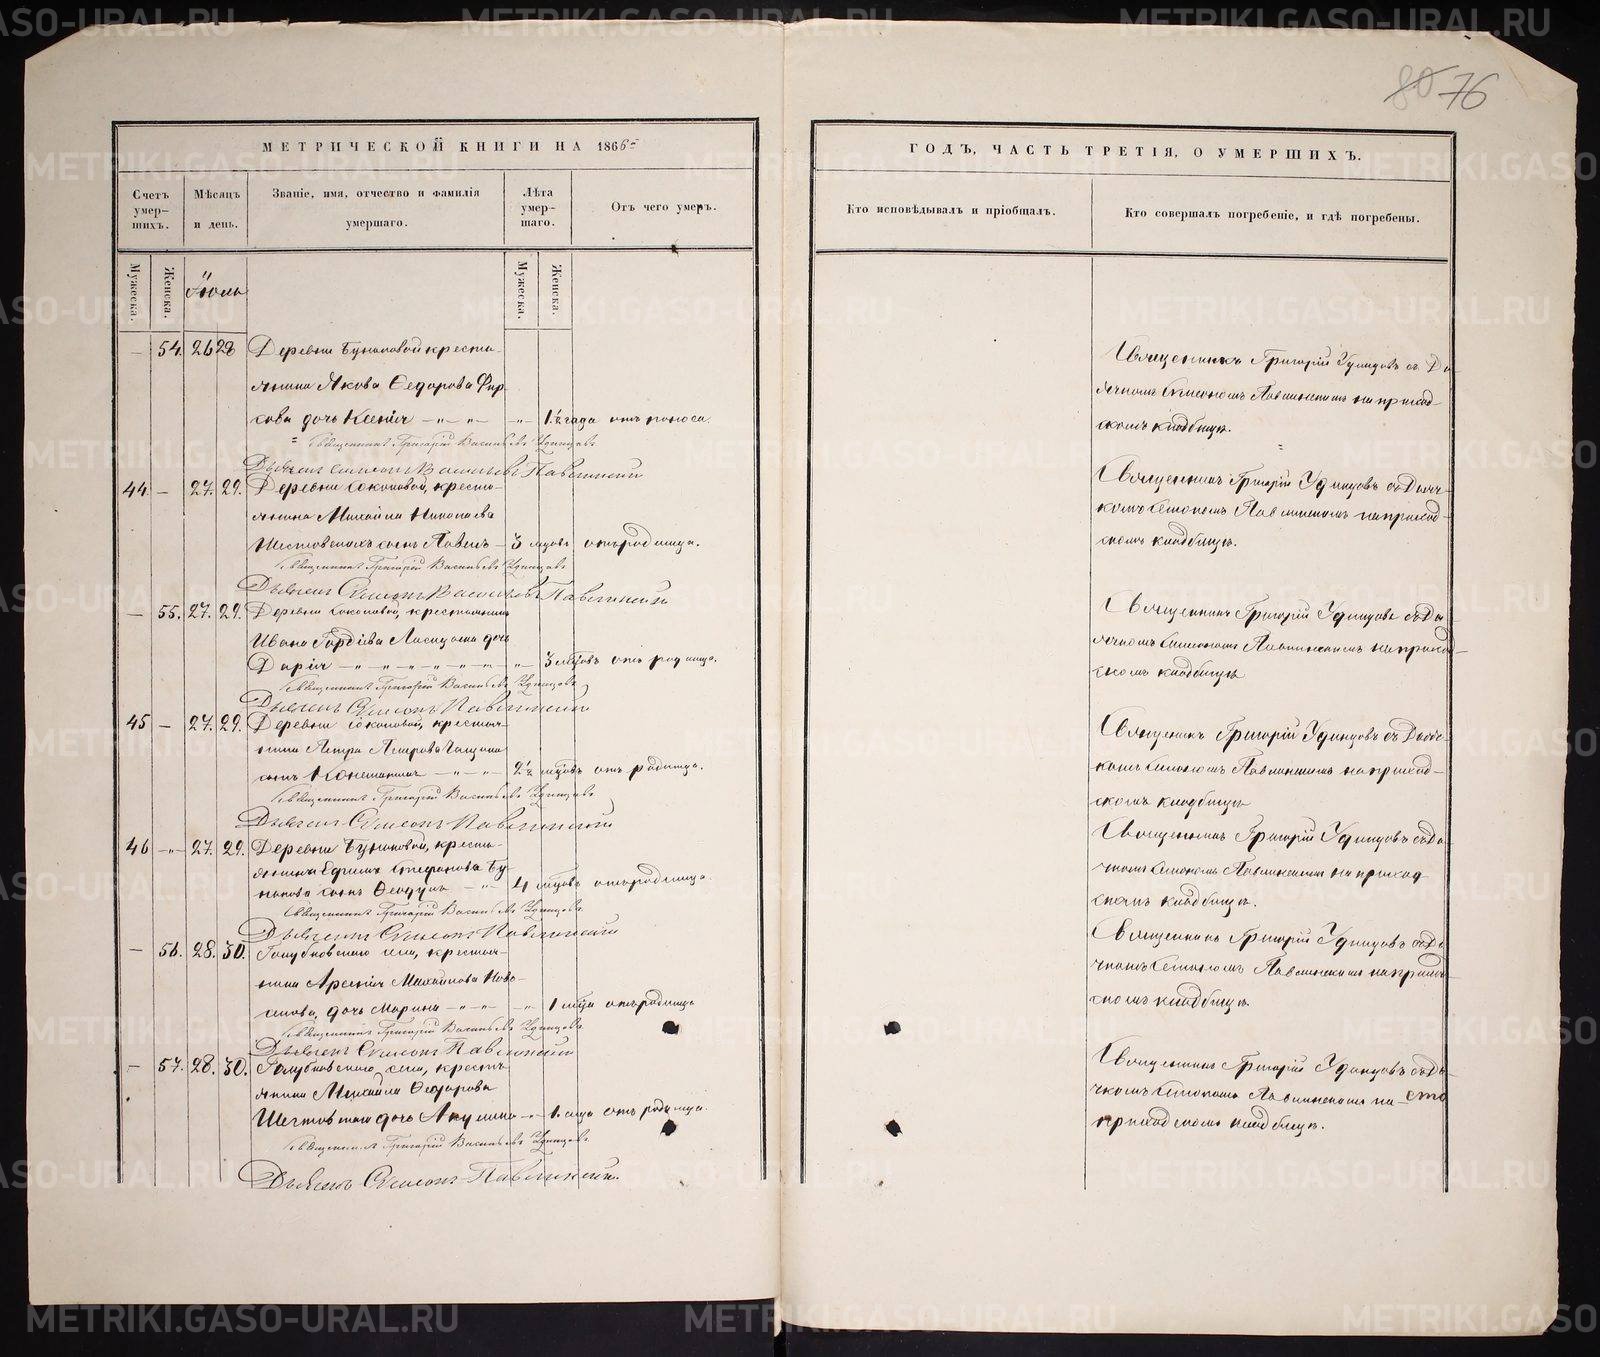 80 76
МЕТРИЧЕСКОЙ КНИГИ НА 1866
ГОДЪ, ЧАСТЬ ТРЕТІЯ, О УМЕРШИХЪ.
Счетъ умер-шихъ.
Мѣсяцъ и день.
Званіе, имя, отчество и фамилія умершаго.
Лѣта умер-шаго.
Отъ чего умеръ.
Кто исповѣдывалъ и пріобщалъ.
Кто совершалъ погребеніе, и гдѣ погребены.
Мужеска.
Женска.
Іюль
Мужеска.
Женска.
— 54. 26 28 Деревни Бунаковой крестьянина Якова Ѳедорова дочь Ксенія 1½ года отъ поноса.
Священникъ Григорій Васильевъ Удинцовъ
Дьячекъ Симеонъ Васильевъ Павлинскій
Священникъ Григорій Удинцовъ съ Дьячкомъ Симеономъ Павлинскимъ на приходскомъ кладбищѣ.
44. — 27. 29. Деревни Соколовой, крестьянина Михаила Николаева сынъ Павелъ 3 мѣсяцовъ отъ родимца.
Священникъ Григорій Васильевъ Удинцовъ
Дьячекъ Симеонъ Васильевъ Павлинскій
Священникъ Григорій Удинцовъ съ Дьячкомъ Симеономъ Павлинскимъ на приходскомъ кладбищѣ.
— 55. 27. 29. Деревни Соколовой, крестьянина Ивана Гордіева дочь Дарія 3 мѣсяцовъ отъ родимца.
Священникъ Григорій Васильевъ Удинцовъ
Дьячекъ Симеонъ Павлинскій
Священникъ Григорій Удинцовъ съ Дьячкомъ Симеономъ Павлинскимъ на приходскомъ кладбищѣ
45 — 27. 29. Деревни Соколовой, крестьянина Петра сынъ 2½ мѣсяцовъ отъ родимца.
Священникъ Григорій Васильевъ Удинцовъ
Дьячекъ Симеонъ Павлинскій
Священникъ Григорій Удинцовъ съ Дьячкомъ Симеономъ Павлинскимъ на приходскомъ кладбищѣ
46 — 27. 29. Деревни Бунаковой, крестьянина Ефима Стефанова Бунакова сынъ Ѳеодулъ 4 мѣсяцовъ отъ родимца.
Священникъ Григорій Васильевъ Удинцовъ
Дьячекъ Симеонъ Павлинскій
Священникъ Григорій Удинцовъ съ Дьячкомъ Симеономъ Павлинскимъ на приходскомъ кладбищѣ.
— 56. 28. 30. Голубковскаго села, крестьянина Арсенія Михайлова дочь Марина 1 мѣсяца отъ родимца
Священникъ Григорій Васильевъ Удинцовъ
Дьячекъ Симеонъ Павлинскій
Священникъ Григорій Удинцовъ съ Дьячкомъ Симеономъ Павлинскимъ на приходскомъ кладбищѣ.
— 57. 28. 30. Голубковскаго села, крестьянина Михаила Ѳедорова дочь Акулина 1 мѣсяца отъ родимца.
Священникъ Григорій Васильевъ Удинцовъ
Дьячекъ Симеонъ Павлинскій.
Священникъ Григорій Удинцовъ съ Дьячкомъ Симеономъ Павлинскимъ на приходскомъ кладбищѣ.
METRIKI.GASO-URAL.RU